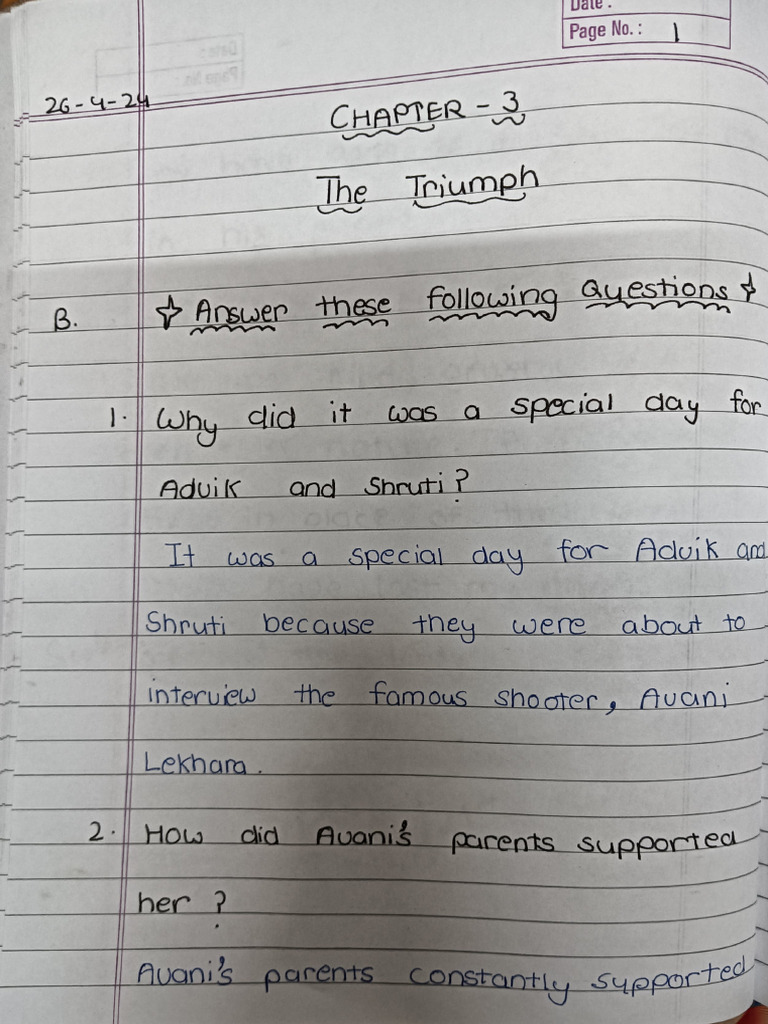 Date :
Page No. : 1
26-4-24
CHAPTER - 3
The Triumph
B. Answer these following Questions
1. Why did it was a special day for
Advik and Shruti?
It was a special day for Advik and
Shruti because they were about to
interview the famous shooter, Avani
Lekhara.
2. How did Avani's parents supported
her ?
Avani's parents constantly supported